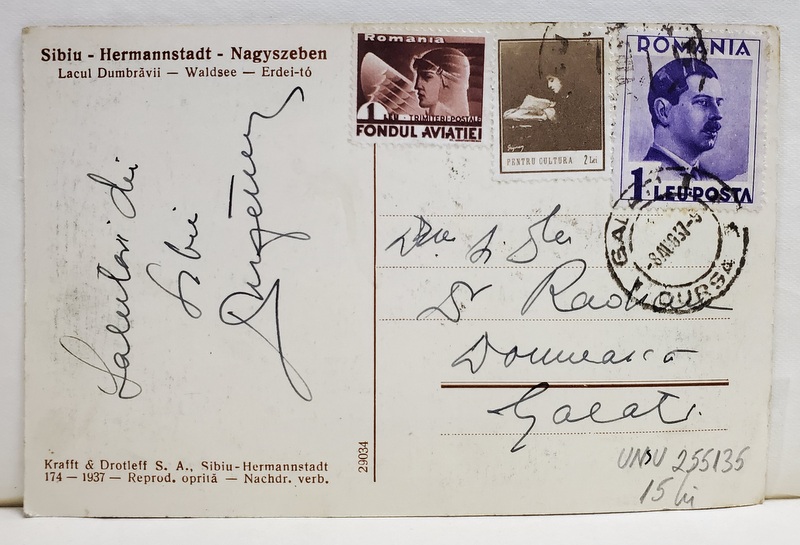 Sibiu - Hermannstadt - Nagyszeben
Lacul Dumbrăvii — Waldsee — Erdei-tó
Romania
1 LEU - TRIMITERI-POSTALE
FONDUL AVIAȚIEI
PENTRU CULTURA 2 Lei
ROMÂNIA
1 LEU-POSTA
BURSA
Salutari din
Sibiu
Dr
Domneasca
Galati.
Krafft & Drotleff S. A., Sibiu-Hermannstadt
174 — 1937 — Reprod. oprită — Nachdr. verb.
29034
255135
15 lei